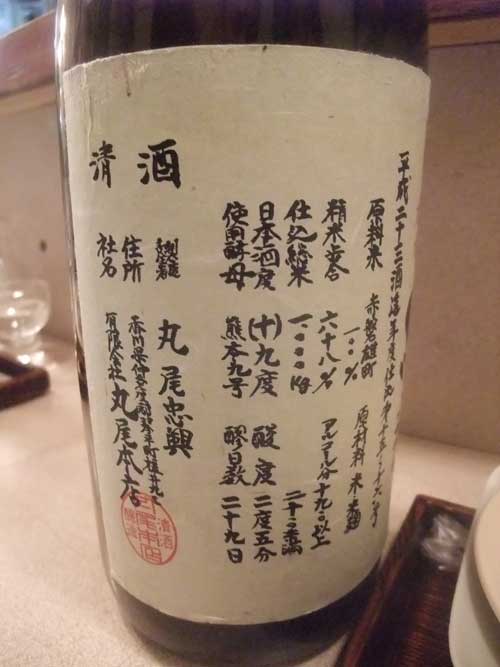 平成二十三酒造年度仕込
原料米 赤磐雄町 一〇〇% 原材料 米 米麹
精米歩合 六十八% アルコール分十九・〇以上二十・〇未満
仕込総米 一〇〇〇kg
日本酒度 (十)九度 酸度 二度五分
使用酵母 熊本九号 醪日数 二十九日
清酒
製造者 丸尾忠興
住所 香川県仲多度郡琴平町榎井九
社名 有限会社丸尾本店